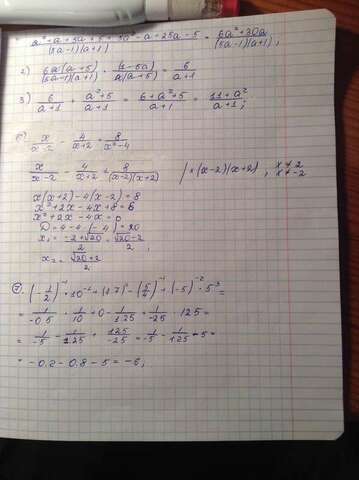 a²+a+5a+5+5a²-a+25a-5 = 6a²+30a
(5a-1)(a+1) (5a-1)(a+1) ;
2) 6a(a+5) · (1-5a) = 6
(5a-1)(a+1) a(a+5) a+1
3) 6 + a²+5 = 6+a²+5 = 11+a²
a+1 a+1 a+1 a+1 ;
x - 4 = 8
x-2 x+2 x²-4
x - 4 = 8 | ×(x-2)(x+2) , x≠2
x-2 x+2 (x-2)(x+2) x≠-2
x(x+2)-4(x-2)=8
x²+2x-4x+8=8
x²+2x-4x=0
D=4-4·(-4)=20
x₁= -2+√20 = √20-2
2 2 ;
x₂= √20+2
2
⑦ (-1/2)⁻¹·10⁻¹+(17)⁰-(5/4)⁻¹+(-5)⁻²·5³=
= 1/-0.5 · 1/10 + 0 - 1/1.25 + 1/-25 · 125 =
= 1/-5 - 1/1.25 + 125/-25 = 1/-5 - 1/1.25 + 5 =
= -0.2-0.8-5=-6;